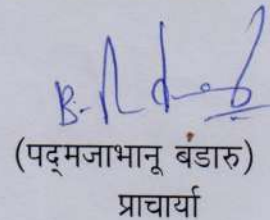 (पद्मजाभानू बंडारु)
प्राचार्या